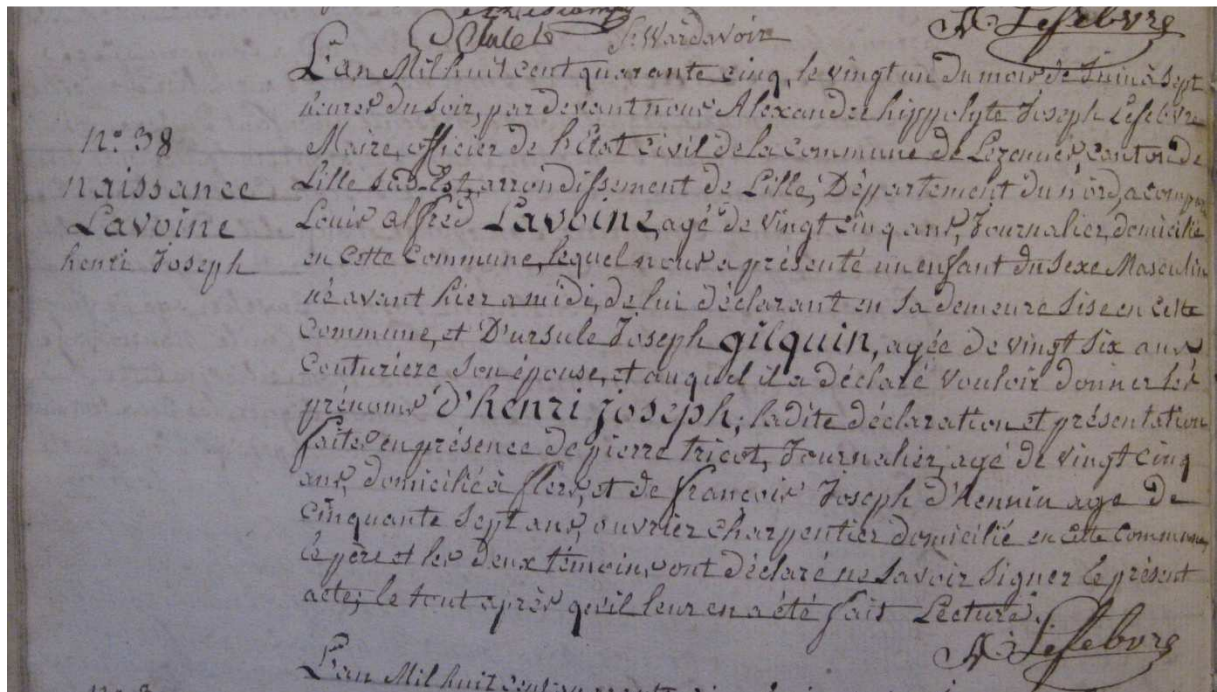 Wardavoir
Lefebvre
L'an Mil huit cent quarante cinq, le vingt un du mois de Juin à Sept
heures du Soir, par devant nous Alexandre hippolyte Joseph Lefebvre
n.° 38
Maire, officier de l'état civil de la commune de Lezennes, canton de
naissance
Lille Sud-Est, arrondissement de Lille, Département du nord, a comparu
Lavoine
Louis alfred Lavoine, agé de vingt cinq ans, Journalier, domicilié
henri Joseph
en Cette Commune, lequel nous a présenté un enfant du Sexe Masculin
né avant hier a midi, de lui déclarant en Sa demeure Sise en Cette
Commune, et D'ursule Joseph gilquin, agée de vingt Six ans
Couturiere Son épouse, et auquel il a déclaré vouloir donner les
prénoms d'henri joseph; ladite déclaration et présentation
faites en présence de pierre tricot, Journalier, agé de vingt cinq
ans, domicilié à flers, et de françois Joseph d'Hennin age de
Cinquante Sept ans, ouvrier Charpentier domicilié en Cette Commune,
le père et les deux témoins, ont déclaré ne Savoir Signer le présent
acte, le tout après qu'il leur en a été fait Lecture.
Lefebvre
L'an Mil huit cent